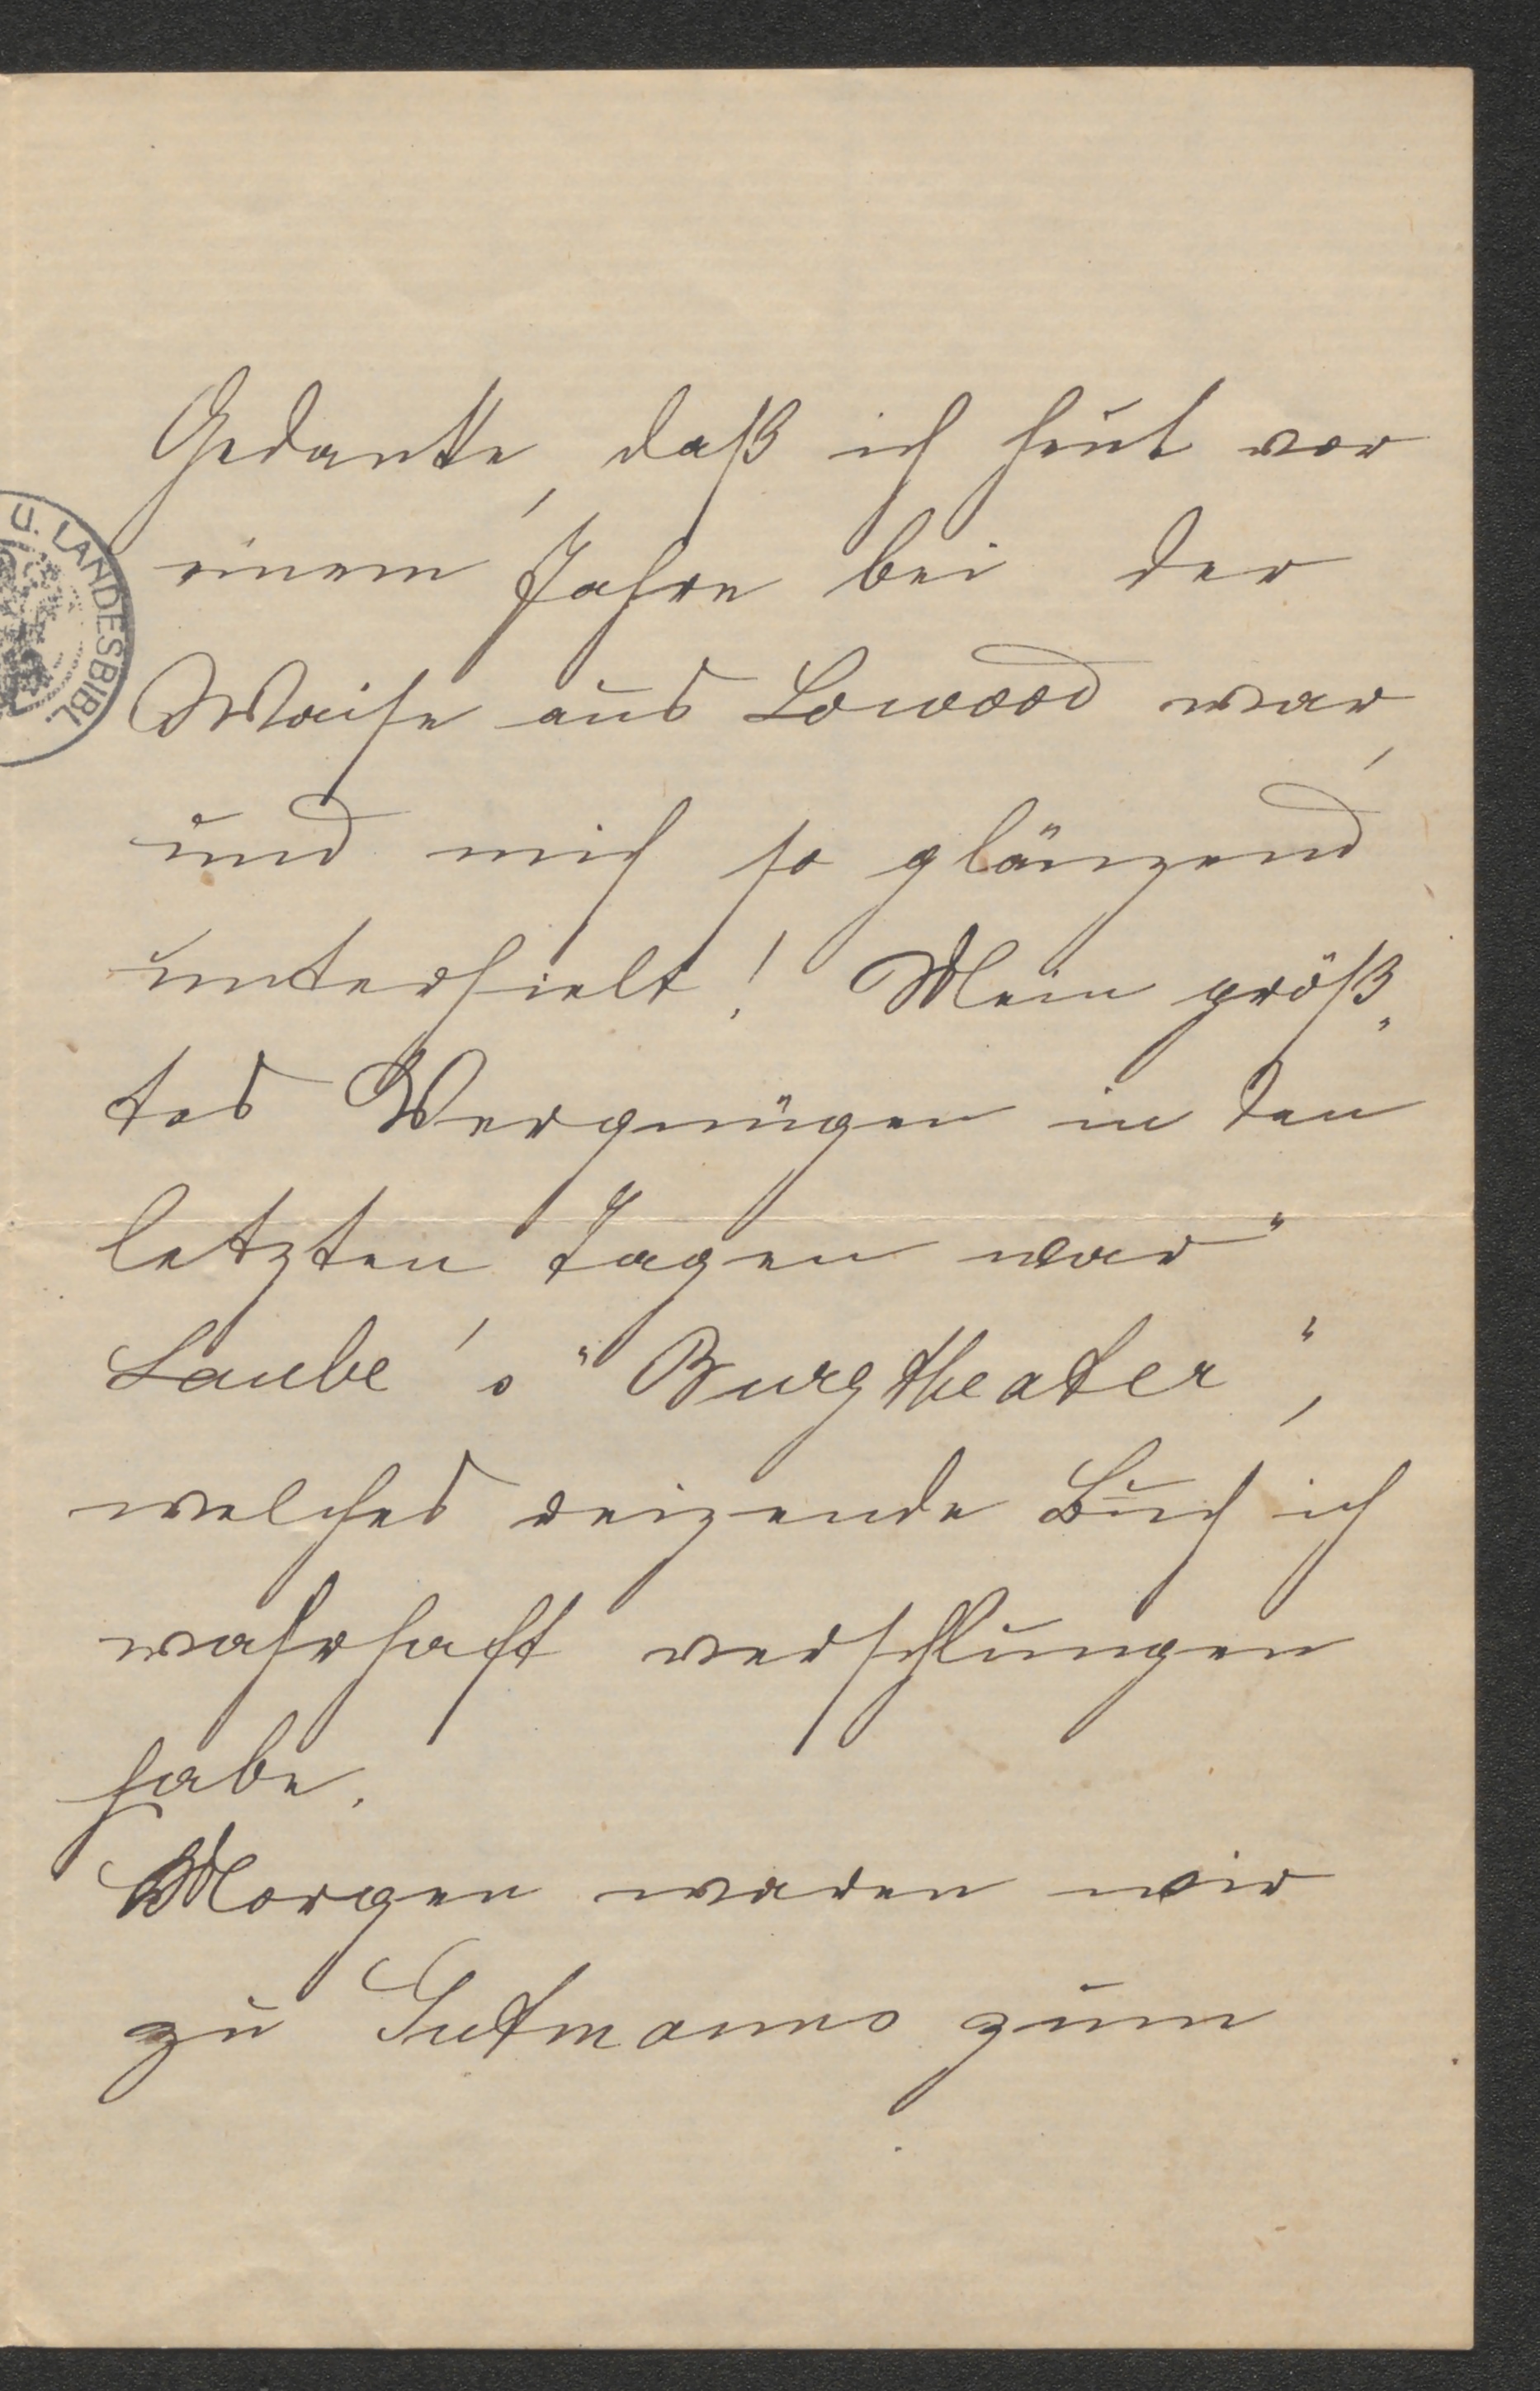 Gedanke, daß ich heut vor
einem Jahre bei der
Waise aus Lowood war,
und mich so glänzend
unterhielt! Mein größ„
tes Vergnügen in den
letzten Tagen war "
Laube's "Burgtheater",
welches reizende Buch ich
wahrhaft verschlungen
habe.
Morgen waren wir
zu Gutmanns zum
U. LANDESBIBL.